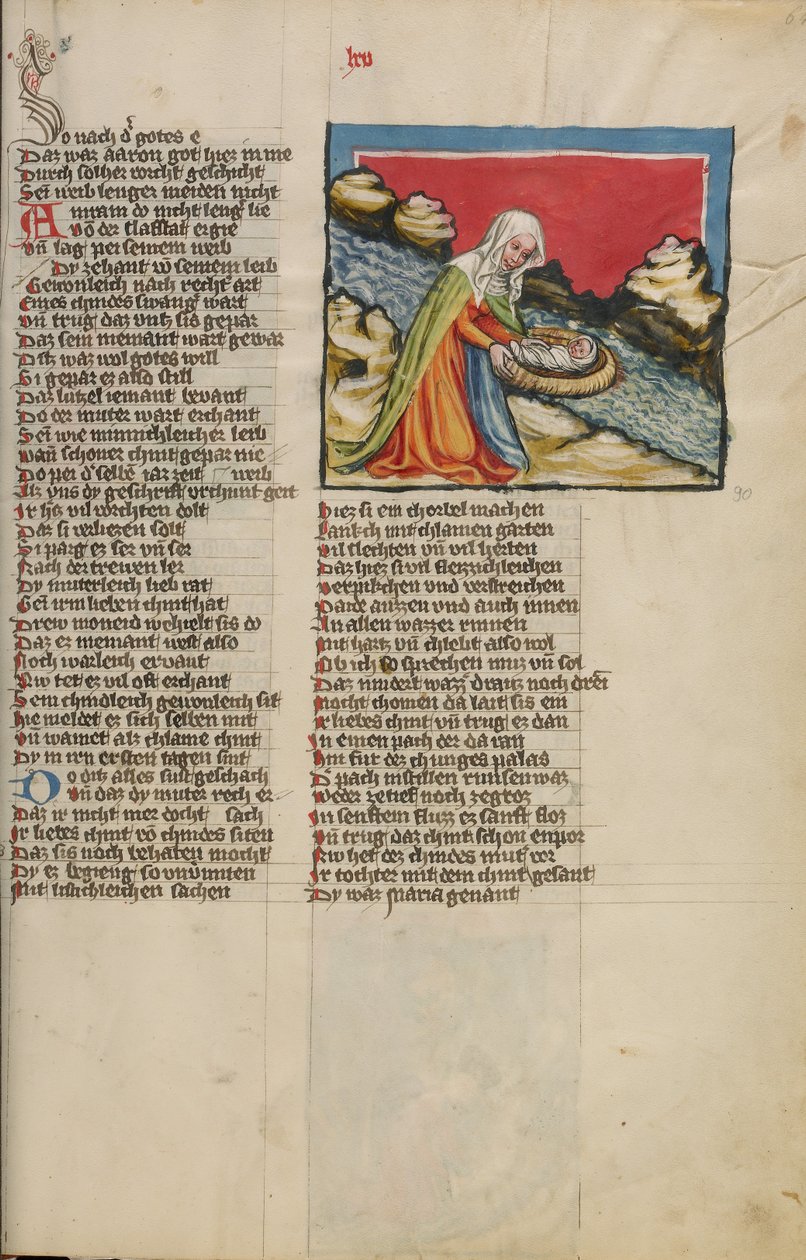 lxv
So nach d' gotes e
Daz waz aaron got hiez in me
Durch solher vorcht geschicht
Sein weib lenger meiden nicht
Amram do nicht leng' lie
Võ der tlafftat ergie
Vñ lag pei seinem weib
Dy zehant võ seinem leib
Gewonleich nach recht art
Eines chindes swang' wart
Vñ trug daz vntz sis gepar
Daz sein niemant wart gewar
Ditz waz wol gotes will
Si gepar ez also still
Daz lutzel iemant bevant
Do der muter wart erchant
Sein wie minnichleicher leib
Wañ schoner chint gepar nie
Do pei d' selbē iar zeit weib
Alz vns dy geschrift vrchunt geit
Ir liez vil vorchten dolt
Daz si verliezen solt
Si parg ez ser vñ ser
Nach der trewen ler
Dy muterleich lieb rat
Gein irm lieben chint hat
Drew moneid wehielt sis do
Daz ez niemant west also
Noch warleich ervant
Nw tet ez vil oft erchant
Sein chindleich gewonleich sit
Hie meldet ez sich selben mit
Vñ wainet alz chlaine chint
Dy in irn ersten tagen sint
Do ditz alles sust geschach
Vñ daz dy muter rech er
Daz ir nicht mer docht sach
Ir liebes chint võ chindes siten
Daz sis noch behaten mocht
Dy ez begieng so vnv'mitten
Mit listichleichen sachen
Hiez si ein chorbel machen
Lankch mit chlainen garten
Vil flechten vñ vil herten
Daz hiez si vil fleizzichleichen
Verpikchen vnd verstreichen
Paide auzzen vnd auch innen
An allen wazzer rinnen
Mit hartz vñ chlebt also wol
Ob ich so sprechen muz vñ sol
Daz nindert wazz' dratz noch drein
Mocht chomen da lait sis ein
Ir liebes chint vñ trug ez dan
In einen pach der da ran
Hin fur der chunges palas
D' pach in stillen runsen waz
Weder zetief noch zegroz
In senftem fluzz ez sanft floz
Vñ trug daz chint schon enpor
Nw het dez chindes mut' vor
Ir tochter mit dem chint gesant
Dy waz Maria genant
90